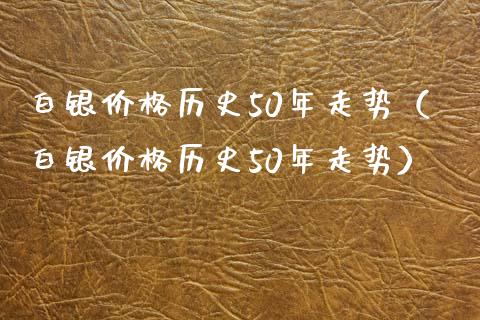 白银价格历史50年走势（
白银价格历史50年走势）